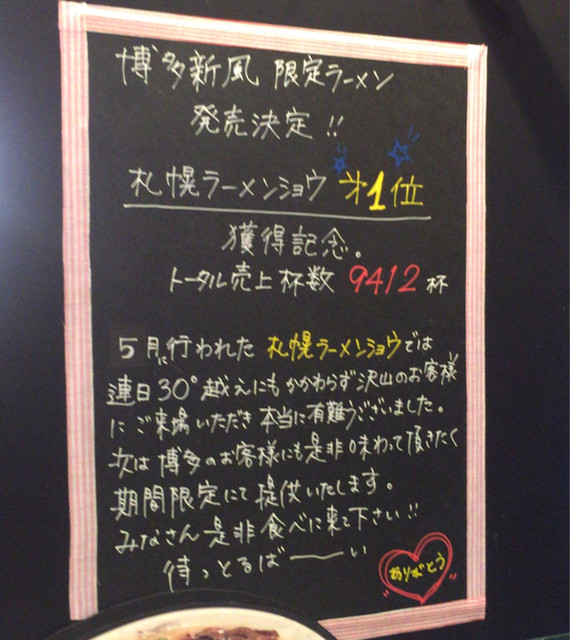 博多新風 限定ラーメン
発売決定!!
札幌ラーメンショウ 才1位
獲得記念。
トータル売上杯数 9412杯
5月に行われた 札幌ラーメンショウでは
連日30°越えにもかかわらず沢山のお客様
にご来場いただき本当に有難うございました。
次は博多のお客様にも是非味わって頂きたく
期間限定にて提供いたします。
みなさん是非食べに来て下さい!!
待っとるばーい
ありがとう